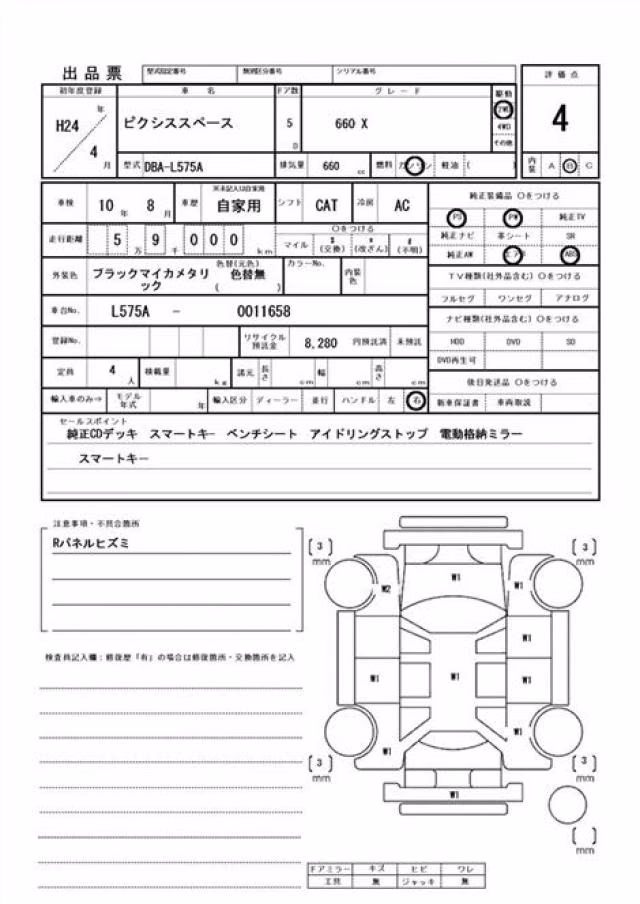 出品票 型式指定番号 類別区分番号 シリアル番号
初年度登録 車 名 ドア数 グレード 駆動 評価点
H24 年 ピクシススペース 5 D 660 X 2WD 4WD その他 4
4 月 型式 DBA-L575A 排気量 660 cc 燃料 ガソリン 軽油 ( ) 内装 A B C
車検 10 年 8 月 車歴 ※未記入は自家用 自家用 シフト CAT 冷房 AC 純正装備品 ○をつける
PS PW 純正TV
走行距離 5 万 9 千 0 0 0 km ○をつける マイル $ (交換) * (改ざん) # (不明) 純正ナビ 革シート SR
純正AW エアB ABS
外装色 ブラックマイカメタリック 色替(元色) 色替無 ( ) カラーNo. 内装色 TV種類(社外品含む) ○をつける
フルセグ ワンセグ アナログ
車台No. L575A - 0011658 ナビ種類(社外品含む) ○をつける
登録No. リサイクル預託金 8,280 円預託済 未預託 HDD DVD SD
DVD再生可
定員 4 人 積載量 kg 諸元 長さ cm 幅 cm 高さ cm 後日発送品 ○をつける
輸入車のみ⇒ モデル年式 年 輸入区分 ディーラー 並行 ハンドル 左 右 新車保証書 車両取説
セールスポイント
純正CDデッキ スマートキー ベンチシート アイドリングストップ 電動格納ミラー
スマートキー
注意事項・不具合箇所
Rパネルヒズミ
検査員記入欄:修復歴「有」の場合は修復箇所・交換箇所を記入
[3] mm [3] mm
W1
W2 W1
W1
W1 W1 W1
W1 W1
[3] mm [3] mm
W1
[ ] mm
ドアミラー キズ ヒビ ワレ
工具 無 ジャッキ 無